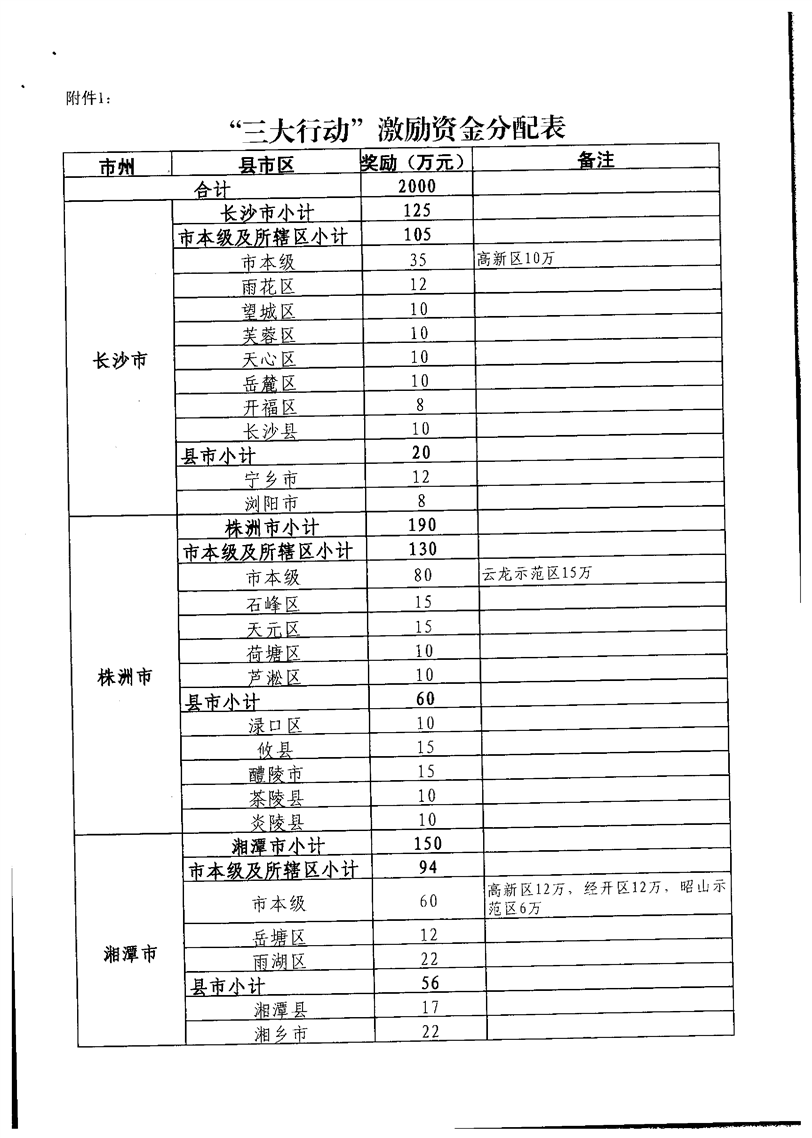 附件1：
“三大行动”激励资金分配表
市州 县市区 奖励（万元） 备注
合计 2000
长沙市小计 125
市本级及所辖区小计 105
市本级 35 高新区10万
雨花区 12
望城区 10
芙蓉区 10
长沙市 天心区 10
岳麓区 10
开福区 8
长沙县 10
县市小计 20
宁乡市 12
浏阳市 8
株洲市小计 190
市本级及所辖区小计 130
市本级 80 云龙示范区15万
石峰区 15
天元区 15
荷塘区 10
株洲市 芦淞区 10
县市小计 60
渌口区 10
攸县 15
醴陵市 15
茶陵县 10
炎陵县 10
湘潭市小计 150
市本级及所辖区小计 94
市本级 60 高新区12万，经开区12万，昭山示
范区6万
岳塘区 12
湘潭市 雨湖区 22
县市小计 56
湘潭县 17
湘乡市 22